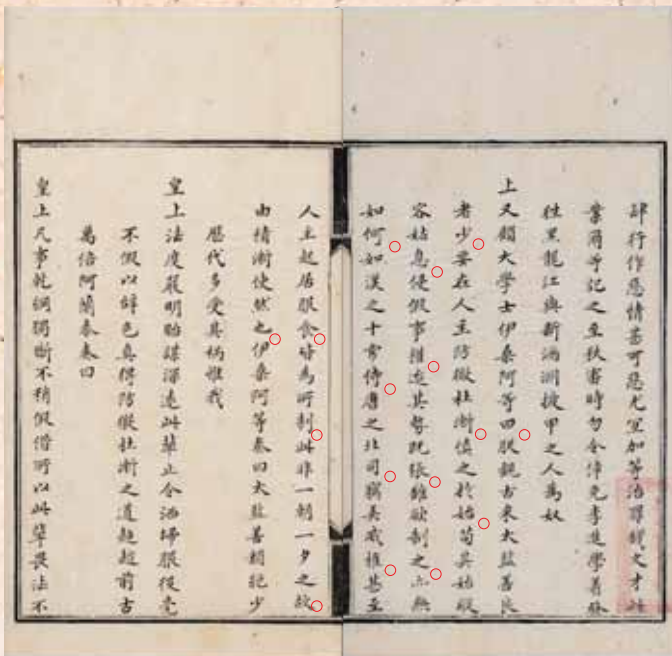 肆行作惡情甚可惡尤宜加等治罪錢文才
葉爾等記之至秋審時勿令倖免李進學著發
往黑龍江與新滿洲披甲之人為奴
上又顧大學士伊桑阿等曰朕觀古來太監善良
者少要在人主防微杜漸慎之於始苟其始縱
容姑息侵假事權迨其勢既張雖欲制之亦無
如何如漢之十常侍唐之北司竊美威權甚至
人主起居服食皆為所制此非一朝一夕之故
由積漸使然也伊桑阿等奏曰太監善類絕少
歷代多受其柄惟我
皇上法度嚴明貽謀深遠此輩止令洒掃服役毫
不假以辭色真得防微杜漸之道超越前古
萬倍阿蘭泰奏曰
皇上凡事乾綱獨斷不稍假借所以此輩畏法不